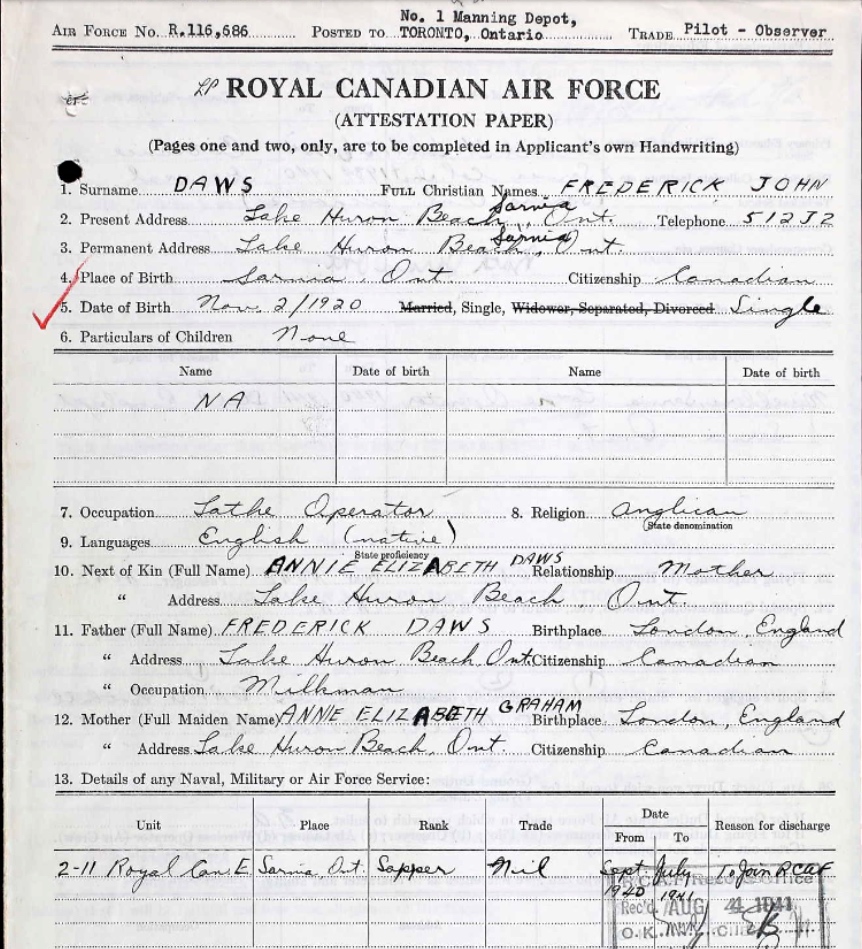 No. 1 Manning Depot,
AIR FORCE No. R.116,686 POSTED TO TORONTO, Ontario TRADE Pilot - Observer
ROYAL CANADIAN AIR FORCE
(ATTESTATION PAPER)
(Pages one and two, only, are to be completed in Applicant's own Handwriting)
1. Surname DAWS FULL Christian Names FREDERICK JOHN
2. Present Address Lake Huron Beach, Sarnia, Ont. Telephone 512J2
3. Permanent Address Lake Huron Beach, Sarnia, Ont.
4. Place of Birth Sarnia, Ont. Citizenship Canadian
5. Date of Birth Nov. 2/1920 Married, Single, Widower, Separated, Divorced. Single
6. Particulars of Children None
Name Date of birth Name Date of birth
NA
7. Occupation Lathe Operator 8. Religion Anglican
(State denomination)
9. Languages English (native)
State proficiency
10. Next of Kin (Full Name) ANNIE ELIZABETH DAWS Relationship Mother
" Address Lake Huron Beach, Ont.
11. Father (Full Name) FREDERICK DAWS Birthplace London, England
" Address Lake Huron Beach, Ont. Citizenship Canadian
" Occupation Milkman
12. Mother (Full Maiden Name) ANNIE ELIZABETH GRAHAM Birthplace London, England
" Address Lake Huron Beach, Ont. Citizenship Canadian
13. Details of any Naval, Military or Air Force Service:
Unit Place Rank Trade Date From To Reason for discharge
2-11 Royal Can E. Sarnia Ont. Sapper Nil Sept. 1940 July 1941 To Join RCAF
R.C.A.F. Records Office
Rec'd AUG 4 1941
O.K.